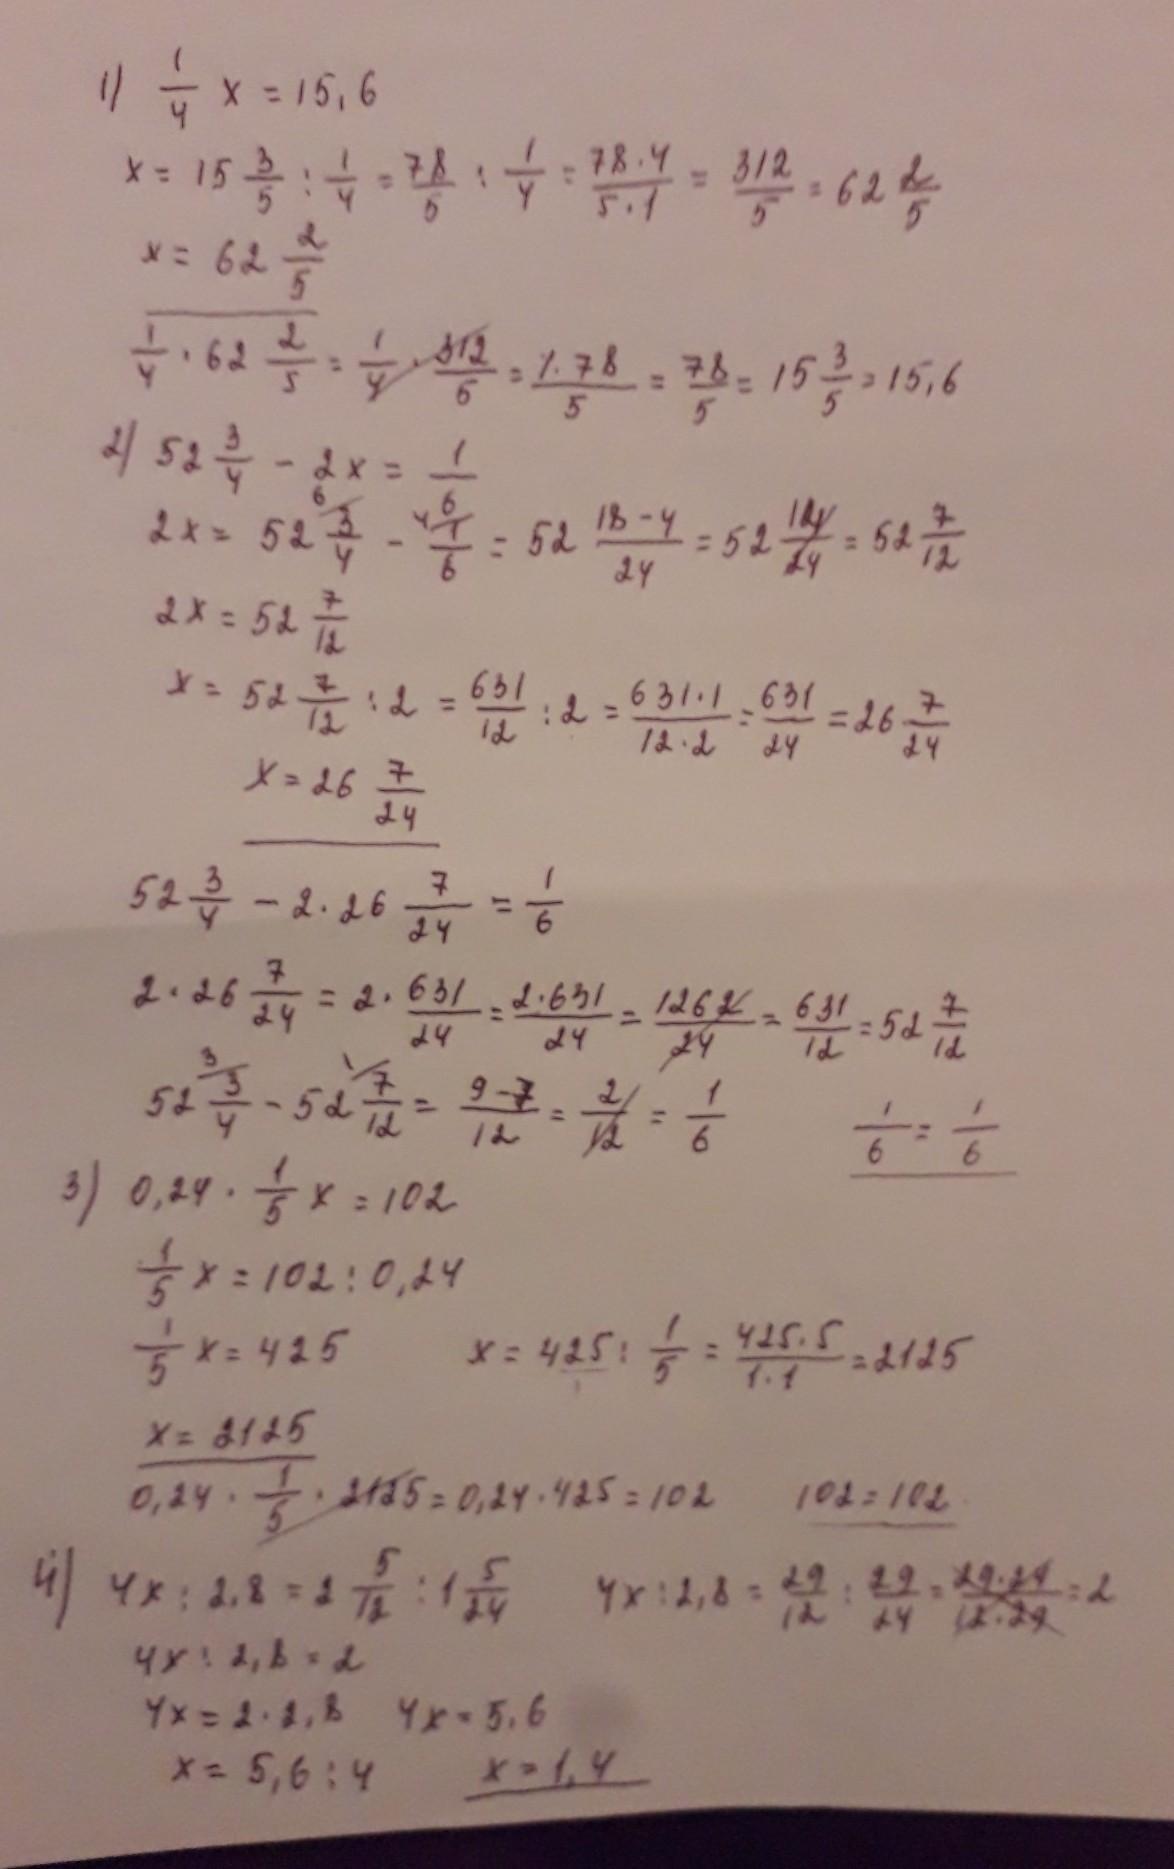 1) 1/4 x = 15,6
x = 15 3/5 : 1/4 = 78/5 : 1/4 = 78·4/5·1 = 312/5 = 62 2/5
x = 62 2/5
1/4 · 62 2/5 = 1/4 · 312/5 = 1·78/5 = 78/5 = 15 3/5 = 15,6
2) 52 3/4 - 2x = 1/6
2x = 52 6 3/4 - 4 1/6 = 52 18-4/24 = 52 14/24 = 52 7/12
2x = 52 7/12
x = 52 7/12 : 2 = 631/12 : 2 = 631·1/12·2 = 631/24 = 26 7/24
x = 26 7/24
52 3/4 - 2·26 7/24 = 1/6
2·26 7/24 = 2· 631/24 = 2·631/24 = 1262/24 = 631/12 = 52 7/12
52 3 3/4 - 52 1 7/12 = 9-7/12 = 2/12 = 1/6 1/6 = 1/6
3) 0,24 · 1/5 x = 102
1/5 x = 102 : 0,24
1/5 x = 425 x = 425 : 1/5 = 425·5/1·1 = 2125
x = 2125
0,24 · 1/5 · 2125 = 0,24·425 = 102 102 = 102
4) 4x : 2,8 = 2 5/12 : 1 5/24 4x : 2,8 = 29/12 : 29/24 = 29·24/12·29 = 2
4x : 2,8 = 2
4x = 2·2,8 4x = 5,6
x = 5,6 : 4 x = 1,4